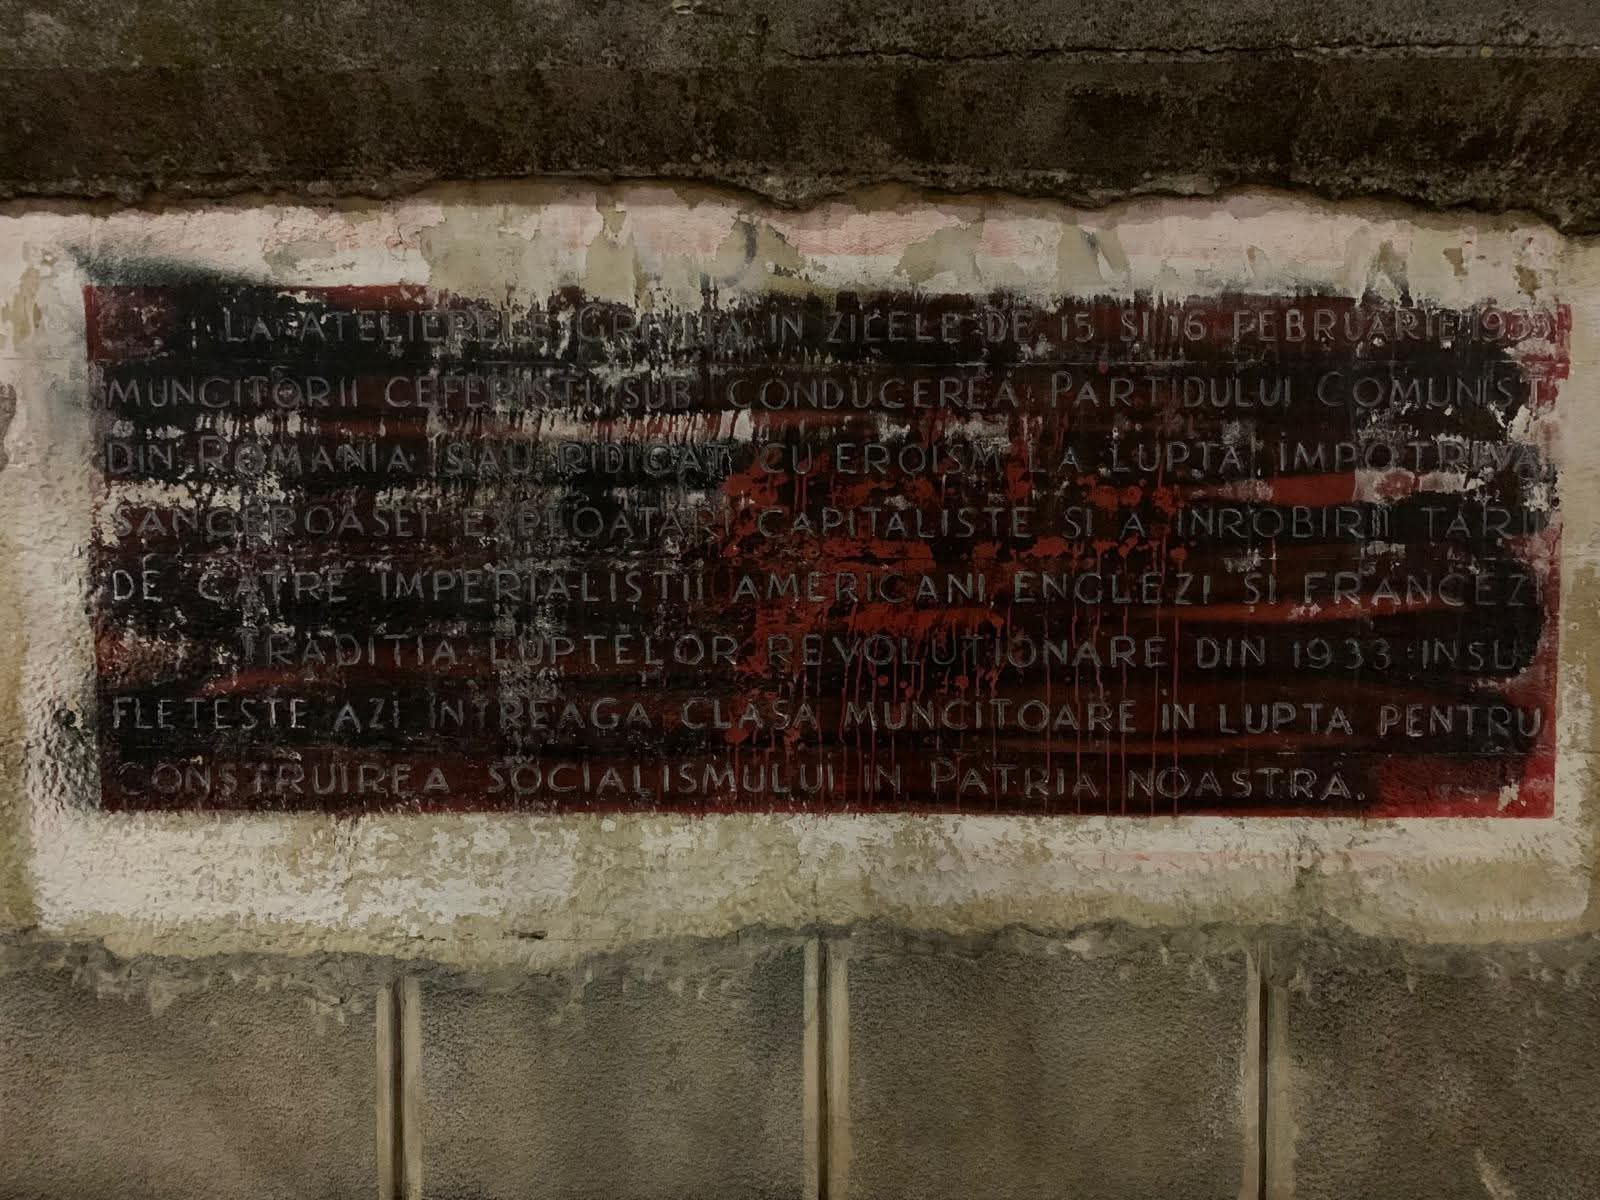 LA ATELIERELE GRIVITA IN ZILELE DE 15 SI 16 FEBRUARIE 1933
MUNCITORII CEFERISTI SUB CONDUCEREA PARTIDULUI COMUNIST
DIN ROMANIA SAU RIDICAT CU EROISM LA LUPTA IMPOTRIVA
SANGEROASEI EXPLOATARI CAPITALISTE SI A INROBIRII TARII
DE CATRE IMPERIALISTII AMERICANI, ENGLEZI ȘI FRANCEZI
TRADITIA LUPTELOR REVOLUTIONARE DIN 1933 INSU
FLETESTE AZI INTREAGA CLASA MUNCITOARE IN LUPTA PENTRU
CONSTRUIREA SOCIALISMULUI IN PATRIA NOASTRĂ.